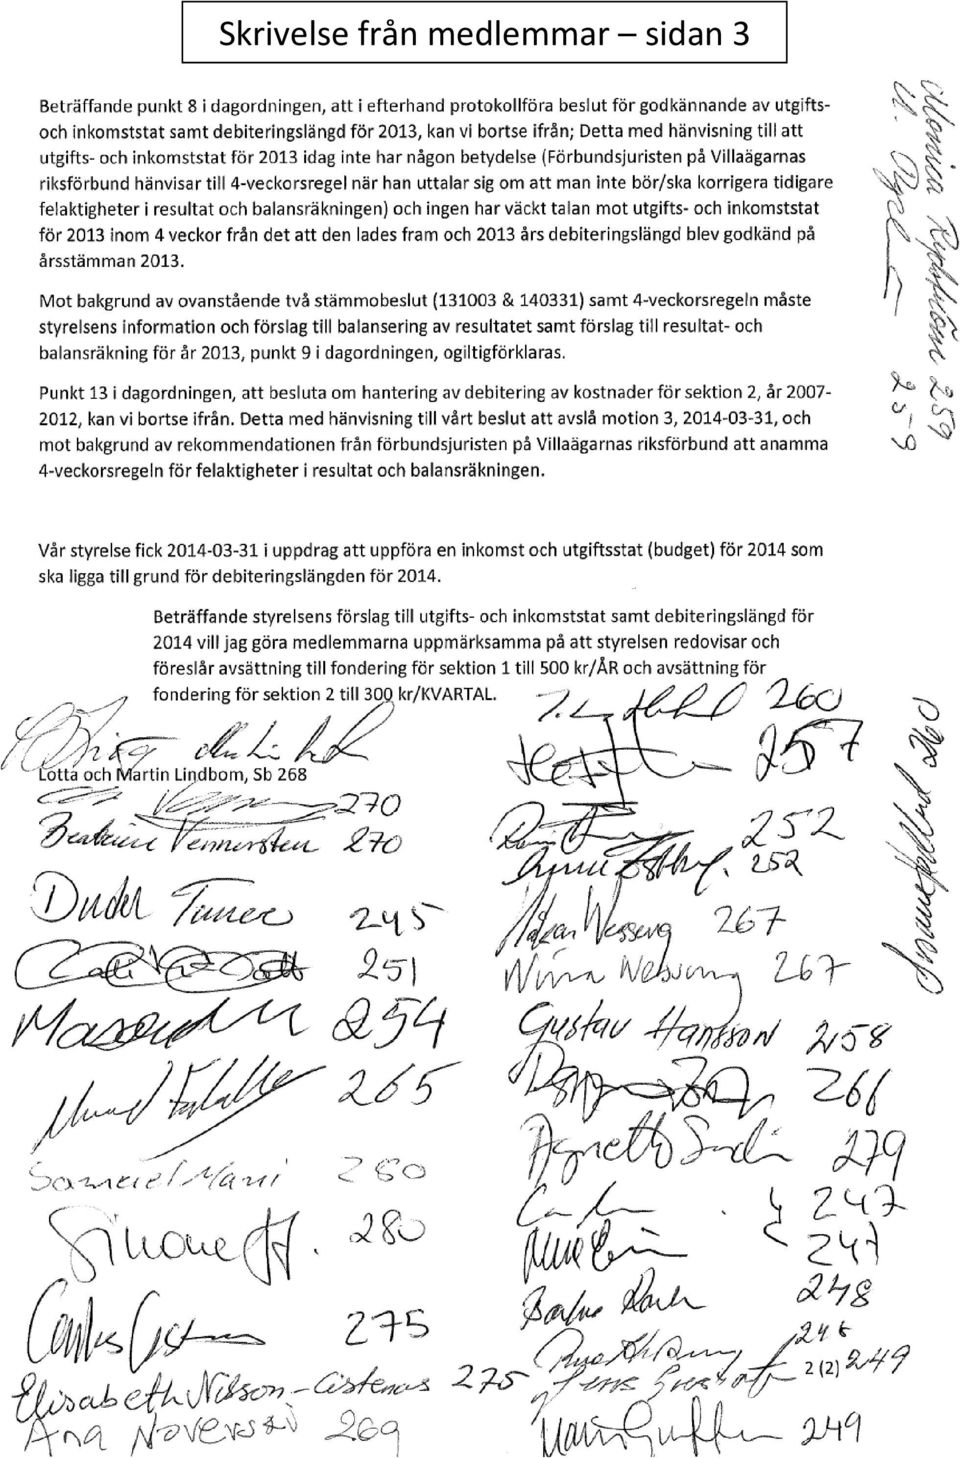 Skrivelse från medlemmar – sidan 3
Beträffande punkt 8 i dagordningen, att i efterhand protokollföra beslut för godkännande av utgifts-
och inkomststat samt debiteringslängd för 2013, kan vi bortse ifrån; Detta med hänvisning till att
utgifts- och inkomststat för 2013 idag inte har någon betydelse (Förbundsjuristen på Villaägarnas
riksförbund hänvisar till 4-veckorsregel när han uttalar sig om att man inte bör/ska korrigera tidigare
felaktigheter i resultat och balansräkningen) och ingen har väckt talan mot utgifts- och inkomststat
för 2013 inom 4 veckor från det att den lades fram och 2013 års debiteringslängd blev godkänd på
årsstämman 2013.
Mot bakgrund av ovanstående två stämmobeslut (131003 & 140331) samt 4-veckorsregeln måste
styrelsens information och förslag till balansering av resultatet samt förslag till resultat- och
balansräkning för år 2013, punkt 9 i dagordningen, ogiltigförklaras.
Punkt 13 i dagordningen, att besluta om hantering av debitering av kostnader för sektion 2, år 2007-
2012, kan vi bortse ifrån. Detta med hänvisning till vårt beslut att avslå motion 3, 2014-03-31, och
mot bakgrund av rekommendationen från förbundsjuristen på Villaägarnas riksförbund att anamma
4-veckorsregeln för felaktigheter i resultat och balansräkningen.
Vår styrelse fick 2014-03-31 i uppdrag att uppföra en inkomst och utgiftsstat (budget) för 2014 som
ska ligga till grund för debiteringslängden för 2014.
Beträffande styrelsens förslag till utgifts- och inkomststat samt debiteringslängd för
2014 vill jag göra medlemmarna uppmärksamma på att styrelsen redovisar och
föreslår avsättning till fondering för sektion 1 till 500 kr/ÅR och avsättning för
fondering för sektion 2 till 300 kr/KVARTAL.
Lotta och Martin Lindbom, Sb 268
270
Beatrice Vennersten 270
245
251
254
265
Samuel Mani 280
Simone 280
275
Elisabeth Nilson-Cisternas 275
Ana 269
260
257
252
252
267
Nina 267
Gustav Hansson 258
266
Agneta 279
247
247
248
248
2(2) 249
249
Monica 259
259
260